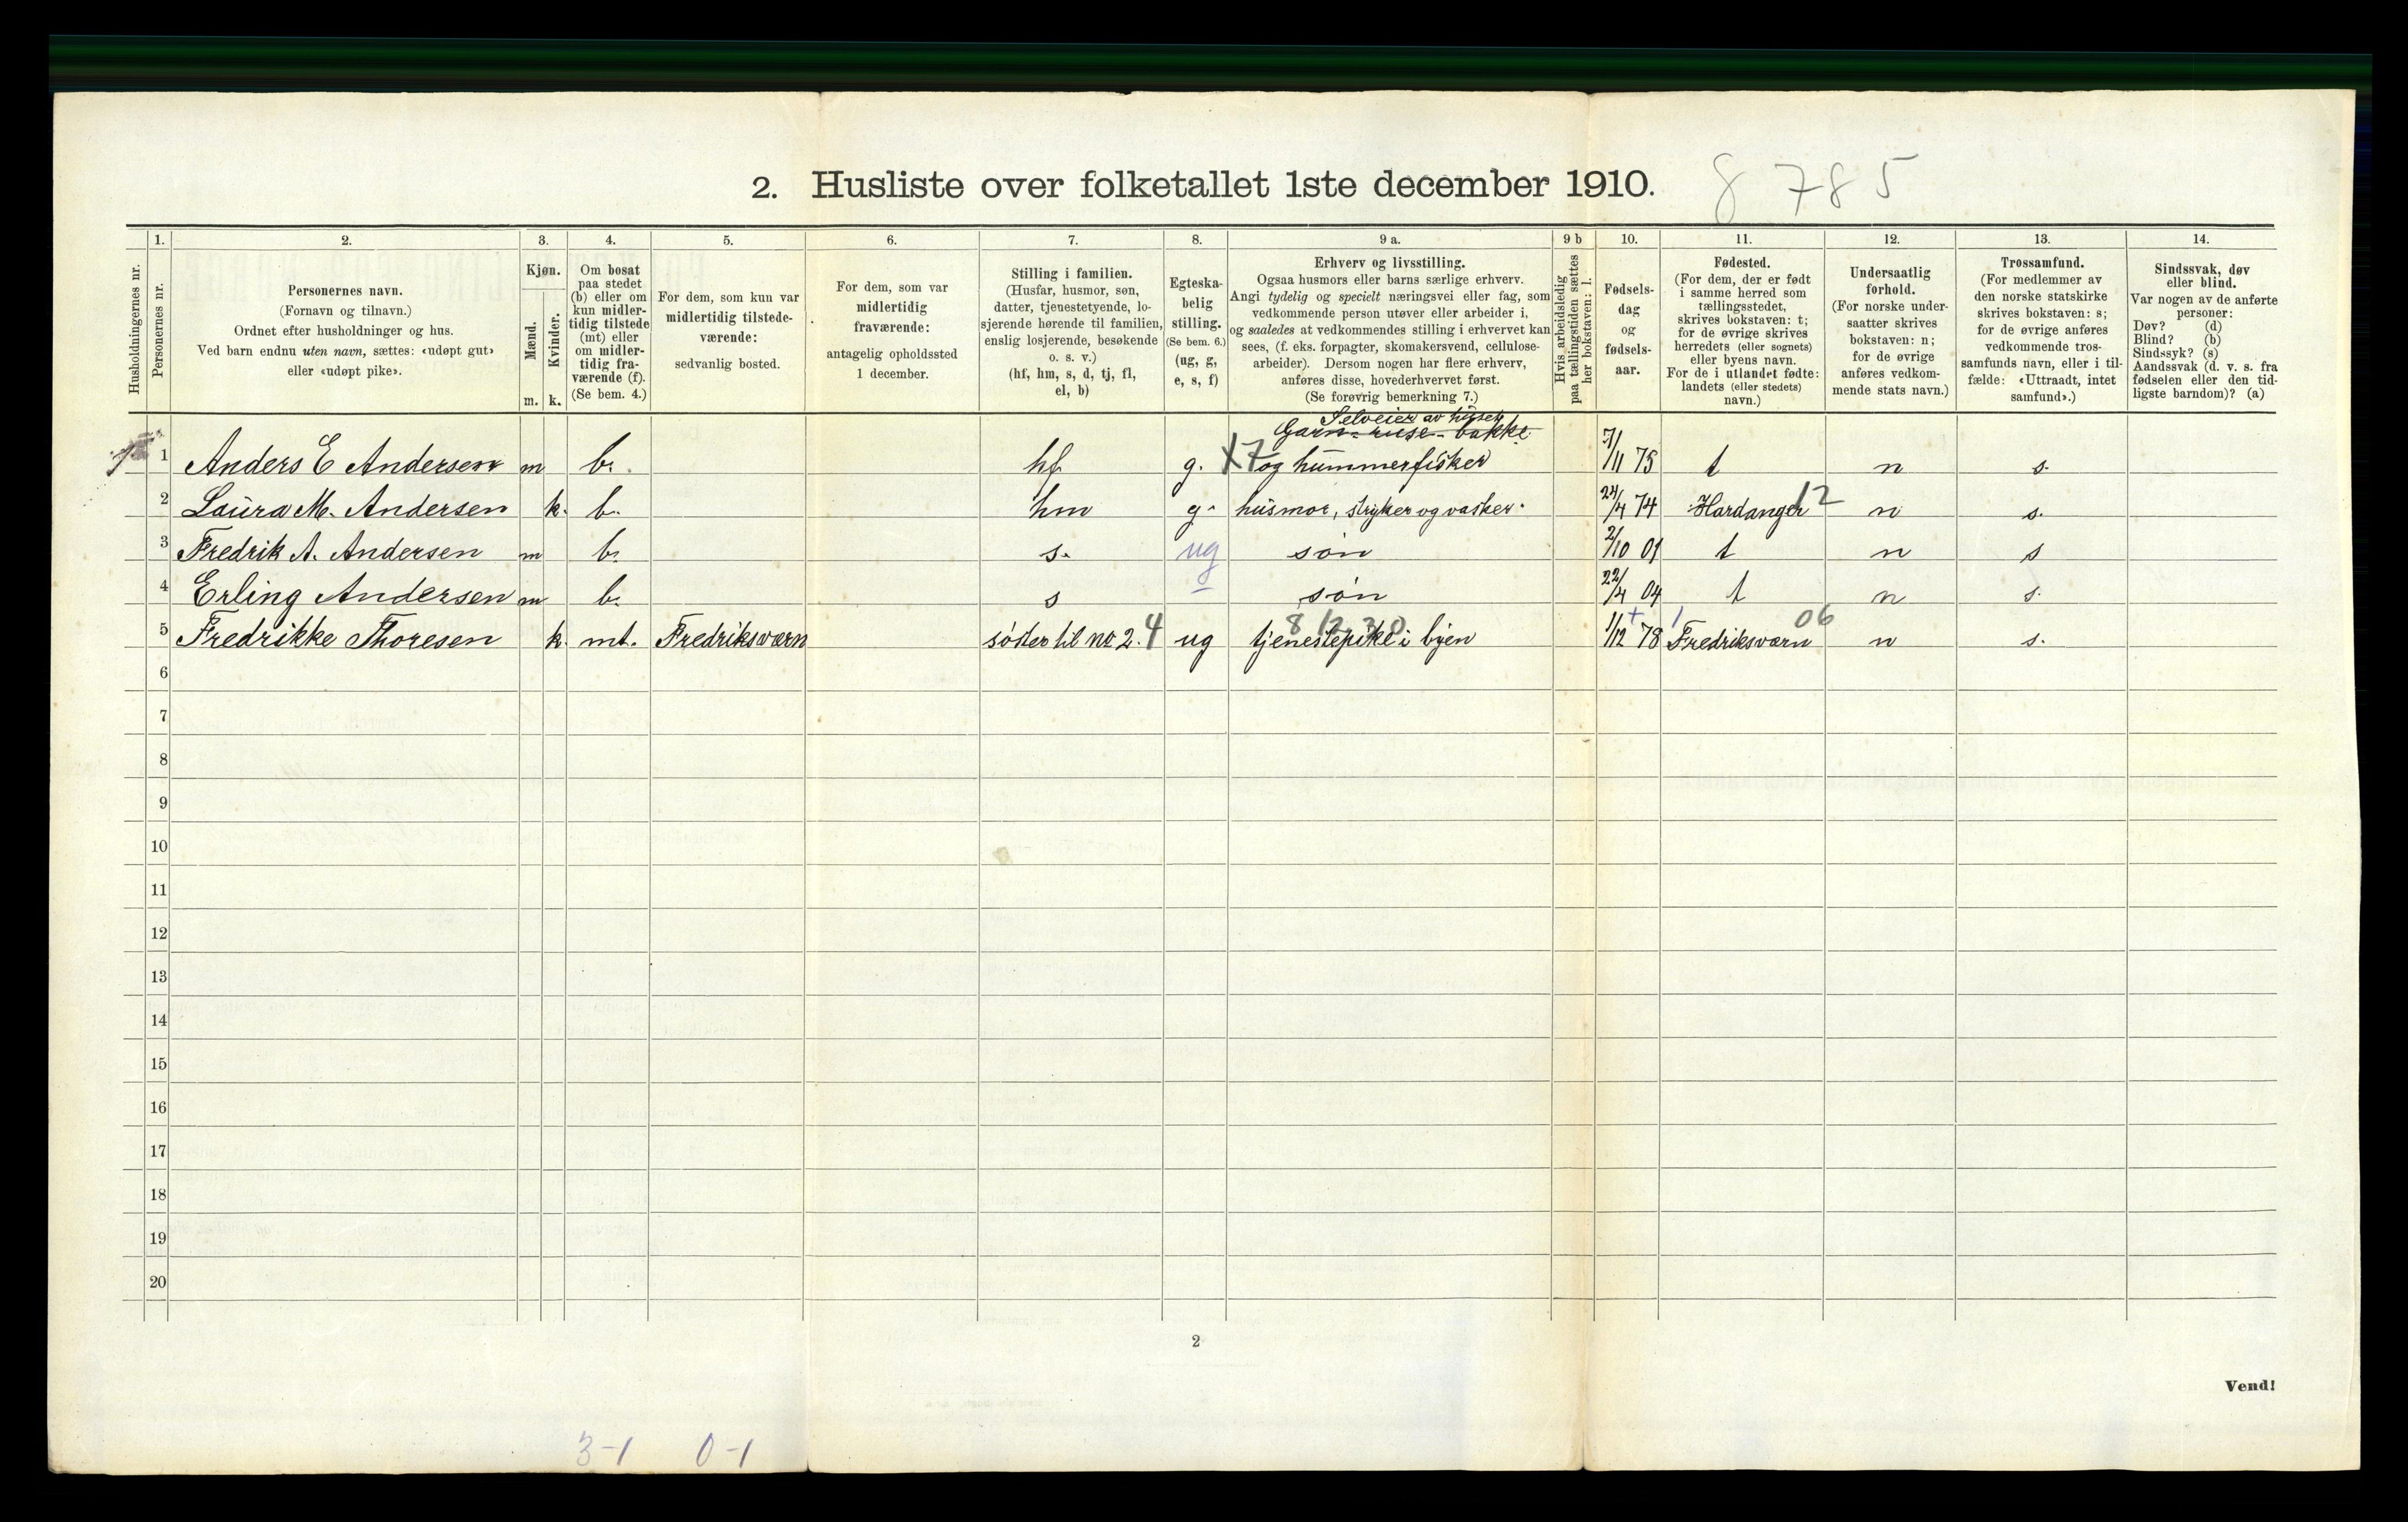 2. Husliste over folketallet 1ste december 1910. 8 785
Husholdningernes nr.
1. Personernes nr.
2. Personernes navn.
(Fornavn og tilnavn.)
Ordnet efter husholdninger og hus.
Ved barn endnu uten navn, sættes: «udøpt gut»
eller «udøpt pike».
3. Kjøn.
Mænd. m.
Kvinder. k.
4. Om bosat
paa stedet
(b) eller om
kun midler-
tidig tilstede
(mt) eller
om midler-
tidig fra-
værende (f).
(Se bem. 4.)
5. For dem, som kun var
midlertidig tilstede-
værende:
sedvanlig bosted.
6. For dem, som var
midlertidig
fraværende:
antagelig opholdssted
1 december.
7. Stilling i familien.
(Husfar, husmor, søn,
datter, tjenestetyende, lo-
sjerende hørende til familien,
enslig losjerende, besøkende
o. s. v.)
(hf, hm, s, d, tj, fl,
el, b)
8. Egteska-
belig
stilling.
(Se bem. 6.)
(ug, g,
e, s, f)
9 a. Erhverv og livsstilling.
Ogsaa husmors eller barns særlige erhverv.
Angi tydelig og specielt næringsvei eller fag, som
vedkommende person utøver eller arbeider i,
og saaledes at vedkommendes stilling i erhvervet kan
sees, (f. eks. forpagter, skomakersvend, cellulose-
arbeider). Dersom nogen har flere erhverv,
anføres disse, hovederhvervet først.
(Se forøvrig bemerkning 7.)
9 b Hvis arbeidsledig
paa tællingstiden sættes
her bokstaven: l.
10. Fødsels-
dag
og
fødsels-
aar.
11. Fødested.
(For dem, der er født
i samme herred som
tællingsstedet,
skrives bokstaven: t;
for de øvrige skrives
herredets (eller sognets)
eller byens navn.
For de i utlandet fødte:
landets (eller stedets)
navn.)
12. Undersaatlig
forhold.
(For norske under-
saatter skrives
bokstaven: n;
for de øvrige
anføres vedkom-
mende stats navn.)
13. Trossamfund.
(For medlemmer av
den norske statskirke
skrives bokstaven: s;
for de øvrige anføres
vedkommende tros-
samfunds navn, eller i til-
fælde: «Uttraadt, intet
samfund».)
14. Sindssvak, døv
eller blind.
Var nogen av de anførte
personer:
Døv? (d)
Blind? (b)
Sindssyk? (s)
Aandssvak (d. v. s. fra
fødselen eller den tid-
ligste barndom)? (a)
Selveier av huset
Garn- ruse- bakke
1 Anders E Andersen m b. hf g. X7 og hummerfisker 7/11 75 t n s.
2 Laura M. Andersen k. b. hm g. husmor, stryker og vasker. 24/4 74 Hardanger 12 n s.
3 Fredrik A. Andersen m b. s. ug søn 2/10 01 t n s
4 Erling Andersen m b. s søn 22/4 04 t n s.
8 12 30 + 1 06
5 Fredrikke Thoresen k. mt. Fredriksværn søster til no 2. 4 ug tjenestepike i byen 1/12 78 Fredriksværn n s.
6
7
8
9
10
11
12
13
14
15
16
17
18
19
20
2
Vend!
3-1 0-1